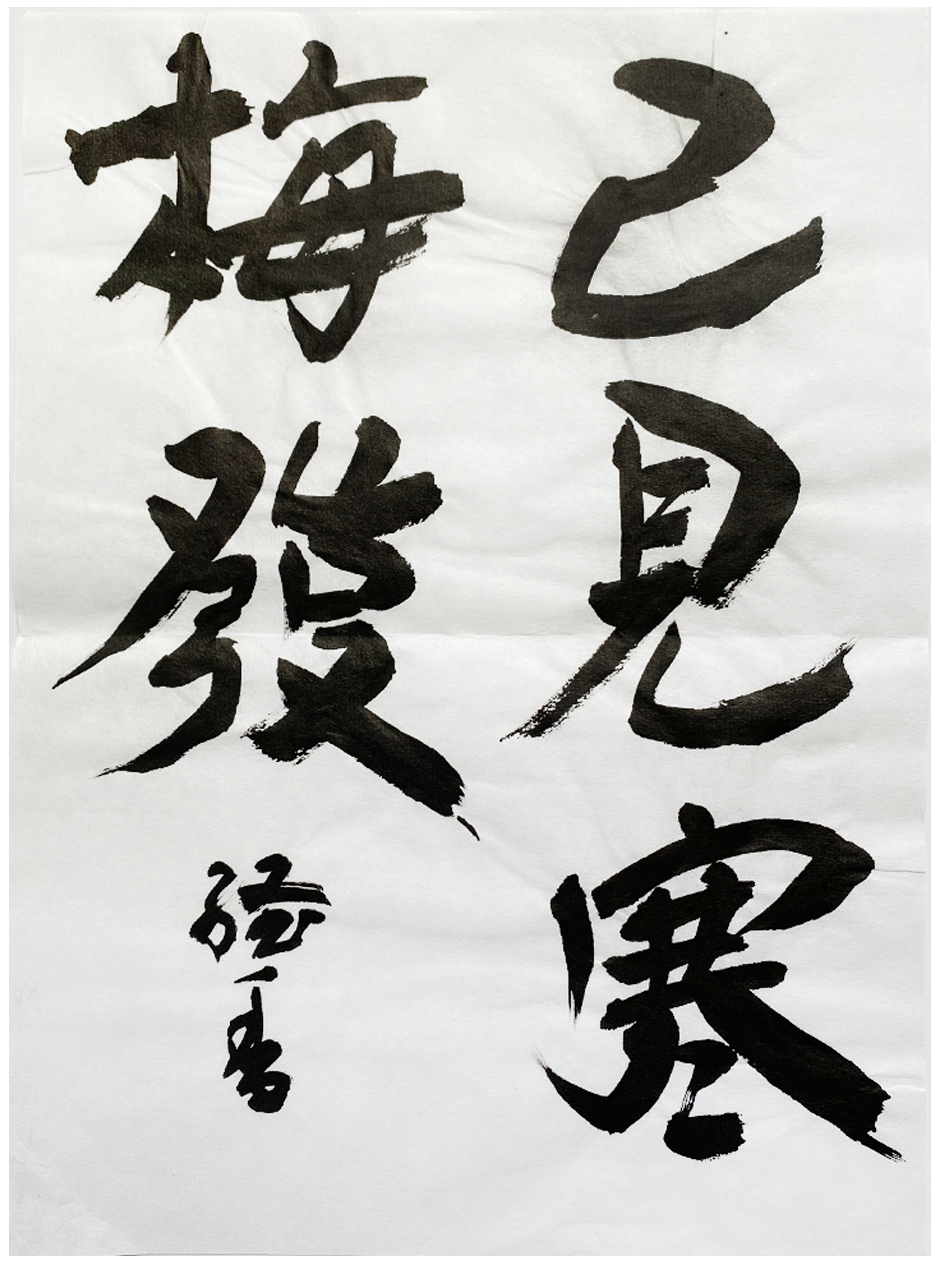 已見寒
梅發